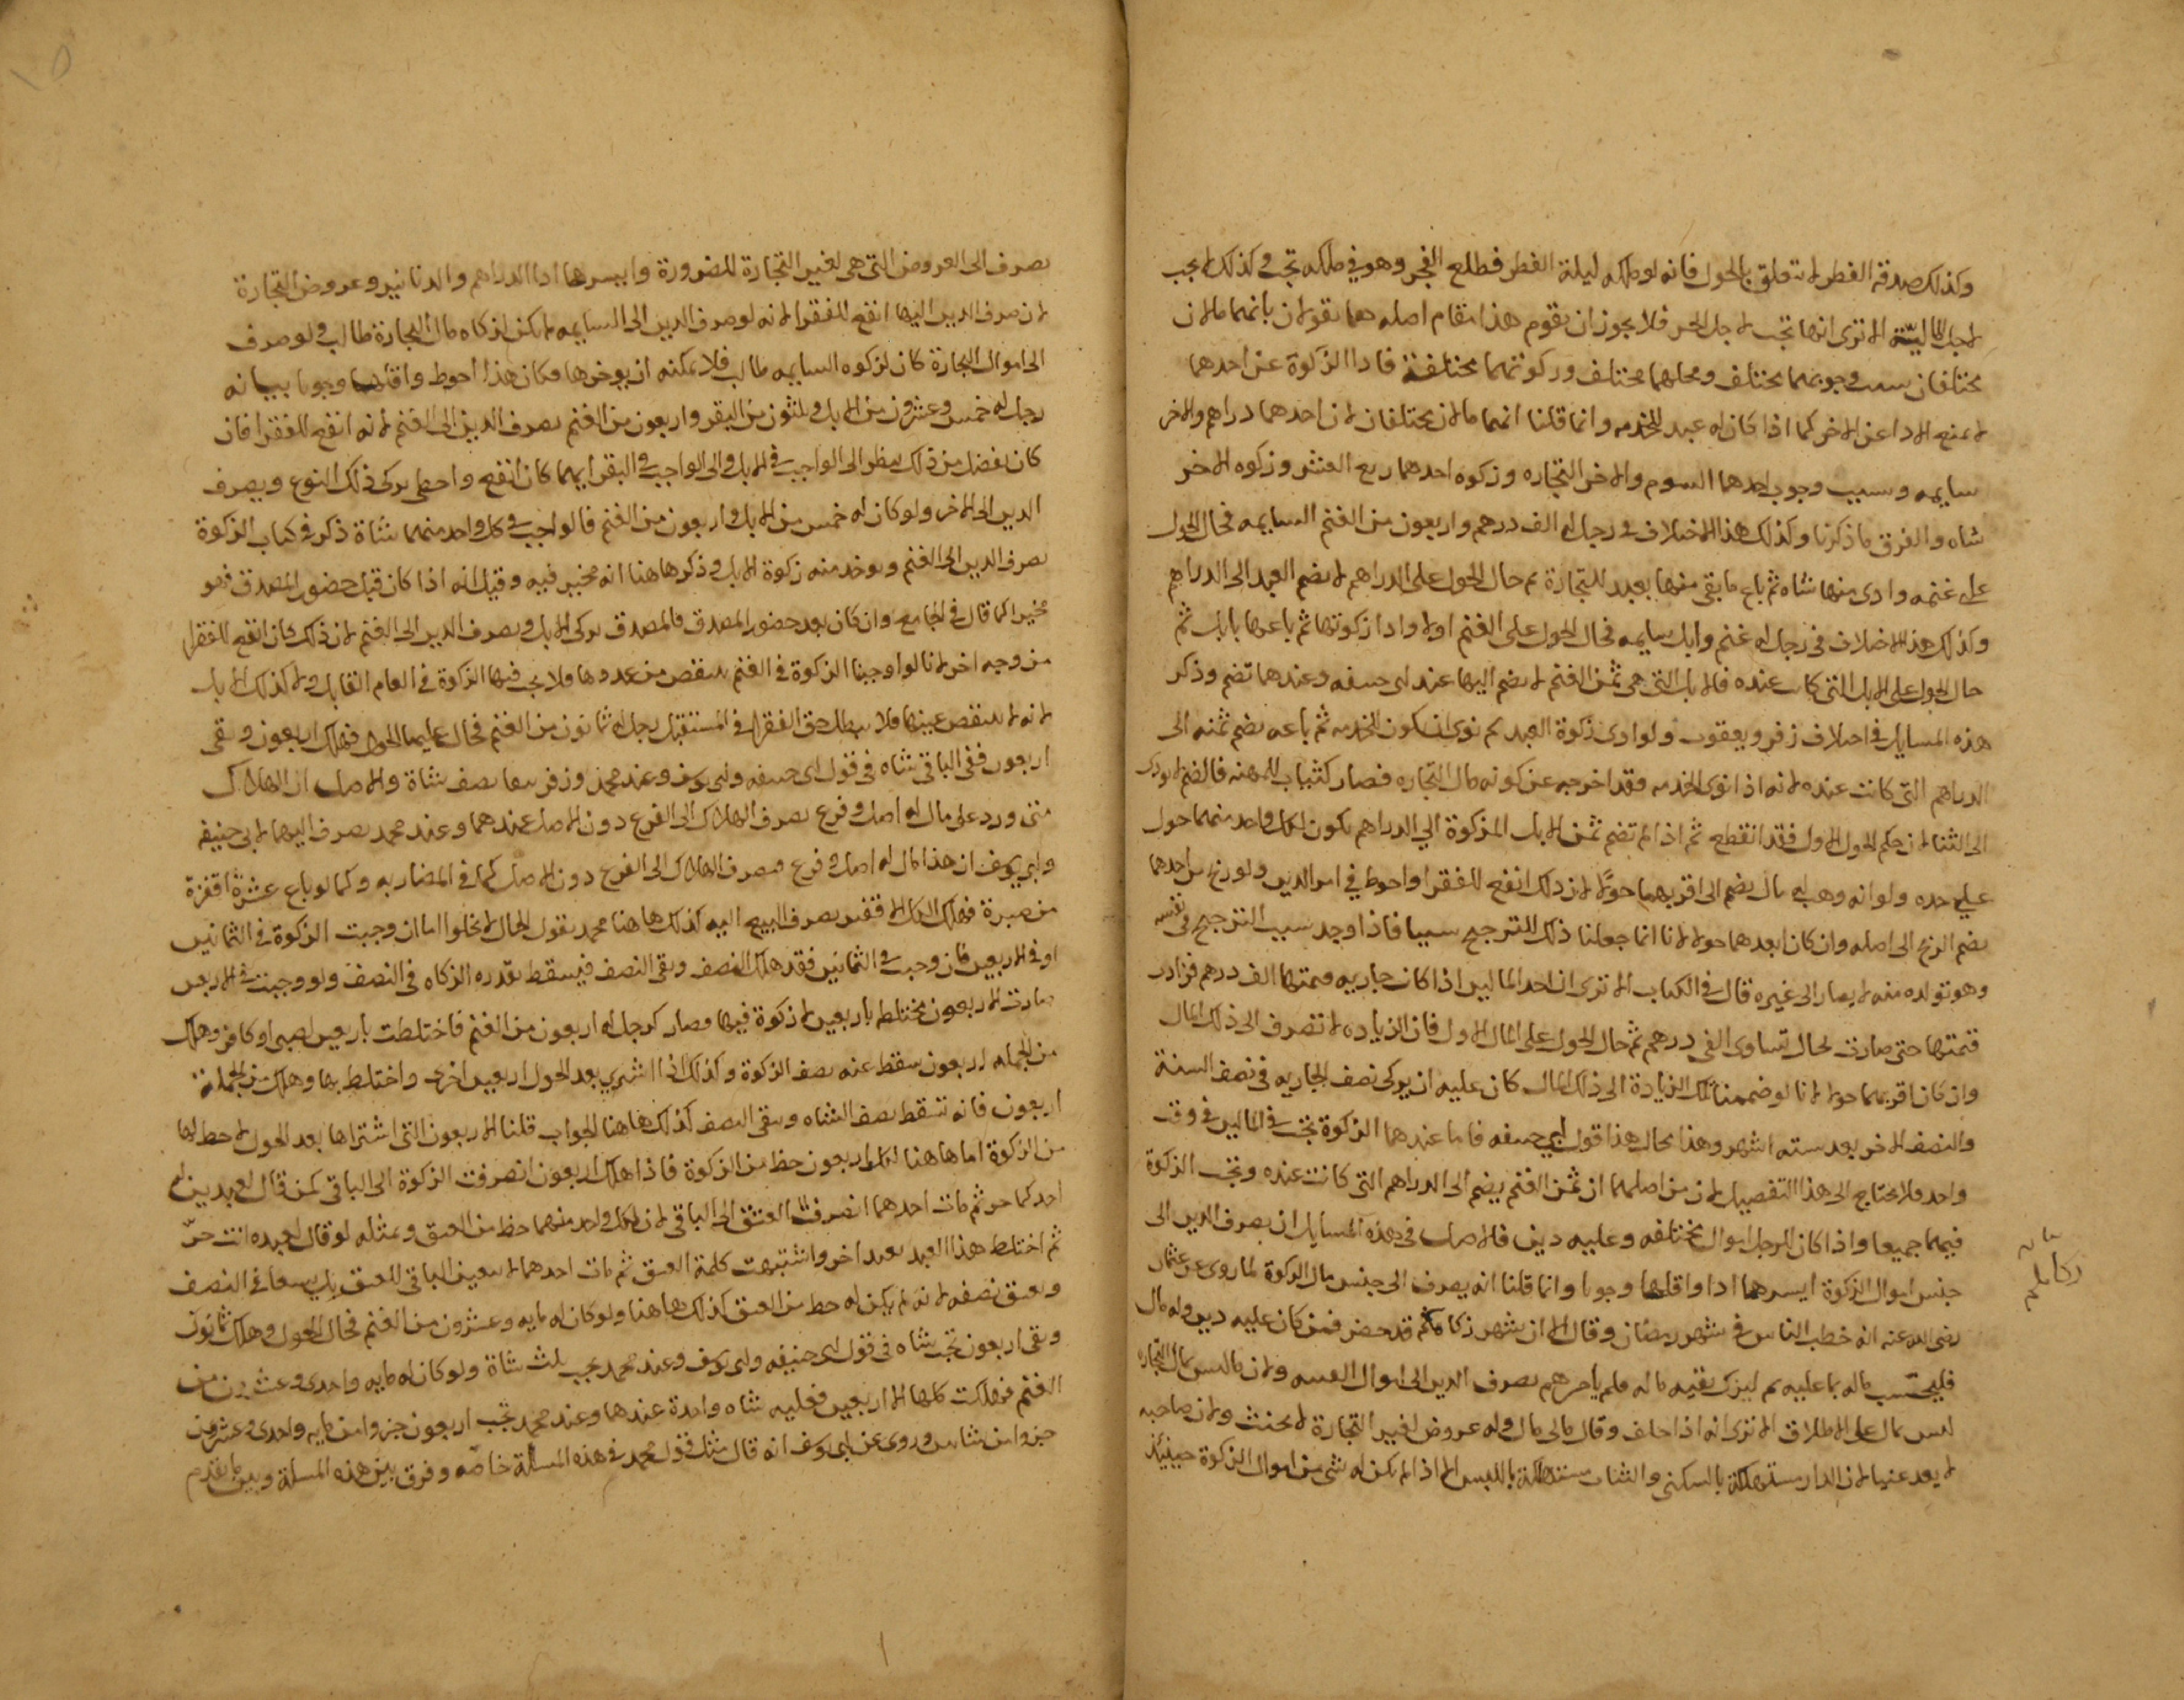 وكذلك صدقة الفطر لا تتعلق بالحول فانه لو ملكه ليلة الفطر فطلع الفجر وهو في ملكه تجب وكذلك لا يجب
لاجل المالية الا ترى انها تجب لاجل الحر فلا يجوز ان يقوم هذا مقام اصله هما يقولان بانهما مالان
مختلفان سبب وجوبهما مختلف ومحلهما مختلف وزكوتهما مختلفة فاداا الزكوة عن احدهما
لا يمنع الادا عن الاخر كما اذا كان له عبد للخدمه وانما قلنا انهما مالان مختلفان لان احدهما دراهم والاخر
سايمه وسبب وجوب احدهما السوم والاخر التجاره وزكوه احدهما ربع العشر وزكوه الاخر
شاه والفرق ما ذكرنا وكذلك هذا الاختلاف في رجل له الف درهم واربعون من الغنم السايمه فحال الحول
على غنمه وادى منها شاه ثم باع ما بقى منها بعبد للتجارة ثم حال الحول على الدراهم لا يضم العبد الى الدراهم
وكذلك هذا الاختلاف في رجل له غنم وابل سايمه فحال الحول على الغنم اولا وادا زكوتها ثم باعها بابل ثم
حال الحول على الابل التي كانت عنده فالابل التي هي ثمن الغنم لا يضم اليها عند ابى حنيفه وعندهما تضم وذكر
هذه المسايل في اختلاف زفر ويعقوب ولو ادى زكوة العبد ثم نوى ان يكون للخدمه ثم باعه يضم ثمنه الى
الدراهم التي كانت عنده لانه اذا نوى الخدمه فقد اخرجه عن كونه مال التجاره فصار كثياب المهنه فالضم لا يودى
الى الثنا لان حكم الحول الاول فقد انقطع ثم اذا لم تضم ثمن الابل المزكوة الى الدراهم يكون لكل واحد منهما حول
على حده ولو انه وهب له مال يضم الى اقربهما حولا لان ذلك انفع للفقرا واحوط في امر الدين ولو ربح من احدهما
يضم الربح الى اصله وان كان ابعدهما حولا لانا انما جعلنا ذلك للترجيح سببا فاذا وجد سبب الترجيح في نفسه
وهو تولده منه لا يصار الى غيره قال في الكتاب الا ترى ان احد المالين اذا كان جاريه قيمتها الف درهم فزادت
قيمتها حتى صارت بحال تساوى الفى درهم ثم حال الحول على المال الاول فان الزياده لا تصرف الى ذلك المال
وان كان اقربهما حولا لانا لو ضممنا تلك الزيادة الى ذلك المال كان عليه ان يزكى نصف الجاريه في نصف السنة
والنصف الاخر بعد سته اشهر وهذا محال هذا قول ابي حنيفه فاما عندهما الزكوة تجب في المالين في وقت
واحد فلا يحتاج الى هذا التفصيل لان من اصلهما ان ثمن الغنم يضم الى الدراهم التي كانت عنده وتجب الزكوة
فيهما جميعا واذا كان للرجل اموال مختلفه وعليه دين فالاصل في هذه المسايل ان يصرف الدين الى
جنس اموال الزكوة ايسرها ادا واقلها وجوبا وانما قلنا انه يصرف الى جنس مال الزكوة لما روى عن عثمان
رضى الله عنه انه خطب الناس في شهر رمضان وقال الا ان شهر زكاتكم قد حضر فمن كان عليه دين وله مال
فليحتسب ماله بما عليه ثم ليزك بقيه ماله فلم يامرهم بصرف الدين الى اموال القنيه ولان ما ليس بمال التجاره
ليس بمال على الاطلاق الا ترى انه اذا حلف وقال مالى مال وله عروض لغير التجارة لا يحنث ولان صاحبه
لا يعد غنيا لان الدار مستهلكة بالسكنى والثياب مستهلكة باللبس الا اذا لم يكن له شى من اموال الزكوة حينئذ
يصرف الى العروض التي هي لغير التجارة للضرورة وايسرها ادا الدراهم والدنانير وعروض التجارة
لان صرف الدين اليها انفع للفقرا لانه لو صرف الدين الى السايمه لم يكن لزكاه مال التجارة طالب ولو صرف
الى اموال التجارة كان لزكوه السايمه طالب فلا يمكنه ان يوخرها فكان هذا احوط واقلها وجوبا بيانه
رجل له خمس وعشرون من الابل وثلثون من البقر واربعون من الغنم يصرف الدين الى الغنم لانه انفع للفقرا فان
كان يفضل من ذلك ينظر الى الواجب في الابل والى الواجب في البقر ايهما كان انفع واحظى يزكى ذلك النوع ويصرف
الدين الى الاخر ولو كان له خمس من الابل واربعون من الغنم فالواجب في كل واحد منهما شاة ذكر في كتاب الزكوة
يصرف الدين الى الغنم ويوخذ منه زكوة الابل وذكر هاهنا انه مخير فيه وقيل انه اذا كان قبل حضور المصدق فهو
مخير كما قال في الجامع وان كان بعد حضور المصدق فالمصدق يزكى الابل ويصرف الدين الى الغنم لان ذلك كان انفع للفقرا
من وجه اخر لانا لو اوجبنا الزكوة في الغنم ينتقص من عددها فلا يجب فيها الزكوة في العام القابل ولا كذلك الابل
لانه لا ينتقص عينها فلا يبطل حق الفقرا في المستقبل رجل له ثمانون من الغنم فحال عليها الحول فهلك اربعون وبقى
اربعون ففى الباقى شاه في قول ابى حنيفه وابى يوسف وعند محمد وزفر نصف شاة والاصل ان الهلاك
متى ورد على مال له اصل وفرع يصرف الهلاك الى الفرع دون الاصل عندهما وعند محمد يصرف اليهما لابى حنيفه
وابى يوسف ان هذا مال له اصل وفرع فيصرف الهلاك الى الفرع دون الاصل كما في المضاربه وكما لو باع عشرة اقفزة
من صبرة فهلك الكل الا قفيز يصرف البيع اليه كذلك هاهنا محمد يقول الحال لا يخلوا اما ان وجبت الزكوة في الثمانين
او في الاربعين فان وجبت في الثمانين فقد هلك النصف وبقى النصف فيسقط بقدره الزكاه في النصف ولو وجبت في الاربعين
صارت الاربعون مختلطه باربعين لا زكوة فيها فصار كرجل له اربعون من الغنم فاختلطت باربعين لصبى او كافر وهلك
من الجمله اربعون سقط عنه نصف الزكوة وكذلك اذا اشترى بعد الحول اربعين اخرى واختلط بها وهلك من الجملة
اربعون فانه تسقط نصف الشاه ويبقى النصف كذلك هاهنا الجواب قلنا الاربعون التي اشتراها بعد الحول لا حظ لها
من الزكوة اما هاهنا لكل اربعون حظ من الزكوة فاذا هلك اربعون انصرفت الزكوة الى الباقى كمن قال لعبدين له
احدكما حر ثم مات احدهما انصرف العتق الى الباقى لان لكل واحد منهما حظ من العتق وبمثله لو قال لعبده انت حر
ثم اختلط هذا العبد بعبد اخر واشتبهت كلمة العتق ثم مات احدهما لا يتعين الباقى للعتق بل يسعا في النصف
ويعتق نصفه لانه لم يكن له حظ من العتق كذلك هاهنا ولو كان له مايه وعشرون من الغنم فحال الحول وهلك ثمانون
وبقى اربعون تجب شاه في قول ابى حنيفه وابى يوسف وعند محمد يجب ثلث شاة ولو كان له مايه واحدى وعشرون من
الغنم فهلكت كلها الا اربعين فعليه شاه واحدة عندهما وعند محمد تجب اربعون جزوا من مايه واحدى وعشرون
جزوا من شاتين وروى عن ابى يوسف انه قال مثل قول محمد في هذه المسلة خاصة وفرق بين هذه المسلة وبين ما تقدم